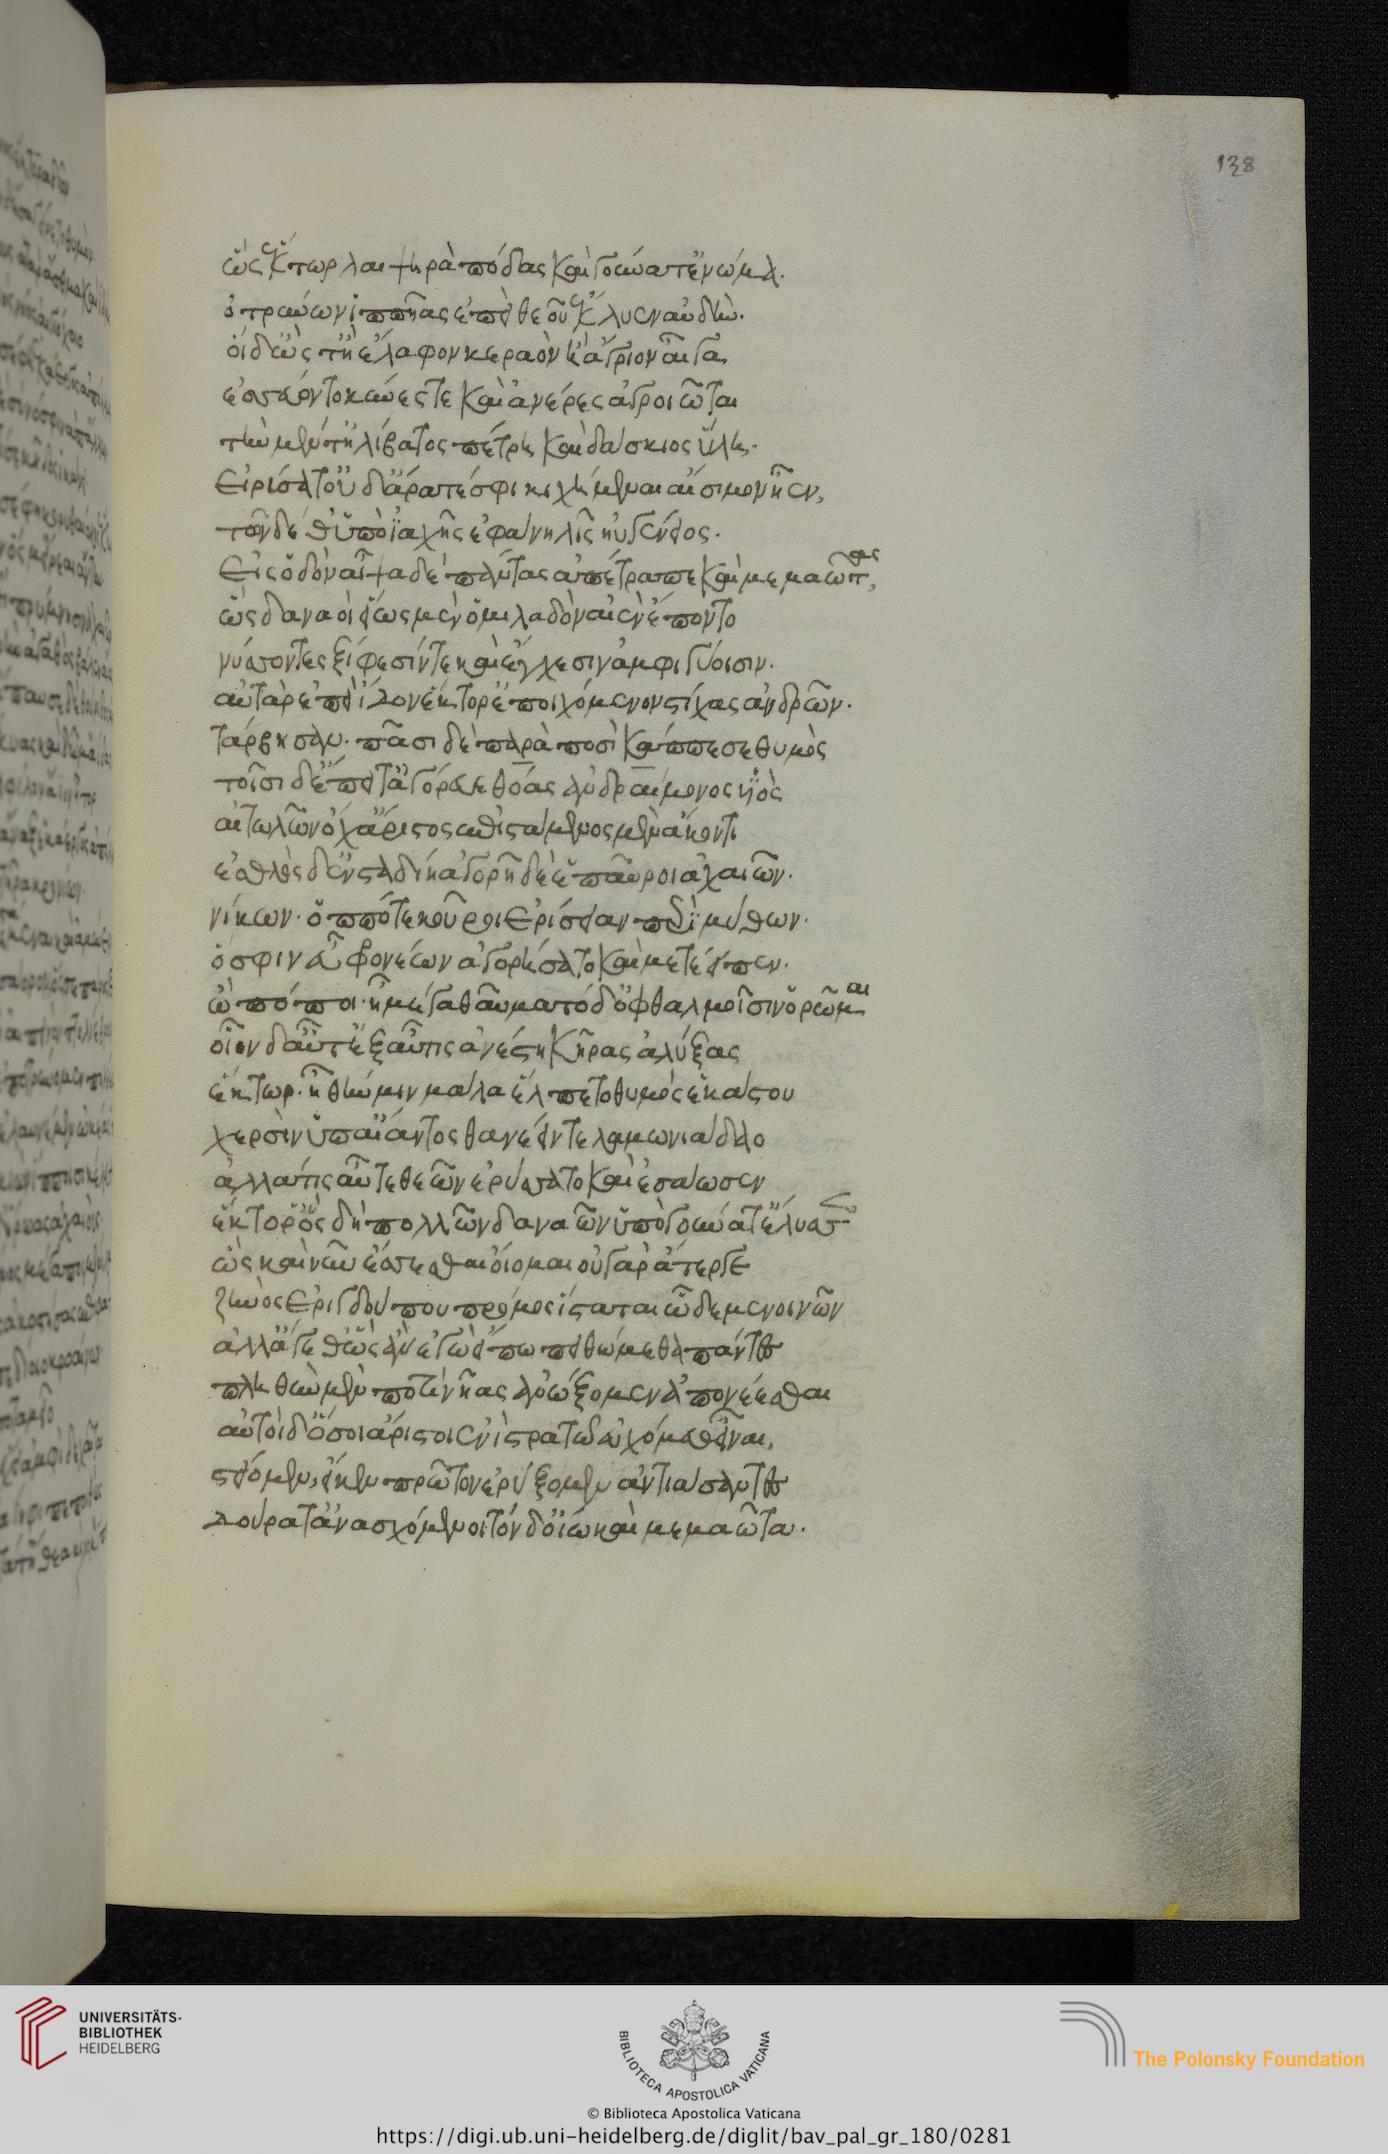 138
ὣς Ἕκτωρ λαιψηρὰ πόδας καὶ γούνατ' ἐνώμα.
ὀτρύνων ἱππῆας ἐπεὶ θεοῦ ἔκλυεν αὐδήν.
οἱ δ' ὥς τ' ἢ ἔλαφον κεραὸν ἢ ἄγριον αἶγα
ἐσσεύοντο κύνες τε καὶ ἀνέρες ἀγροιῶται
τὸν μέν τ' ἠλίβατος πέτρη καὶ δάσκιος ὕλη.
εἰρύσατ' οὐδ' ἄρα τέ σφι κιχήμεναι αἴσιμον ἦεν,
τῶν δέ θ' ὑπὸ ἰαχῆς ἐφάνη λῖς ἠϋγένειος.
εἰς ὁδὸν αἶψα δὲ πάντας ἀπέτραπε καὶ μεμαῶτας,
ὣς δαναοὶ εἵως μὲν ὁμιλαδὸν αἰὲν ἕποντο
νύσσοντες ξίφεσίν τε καὶ ἔγχεσιν ἀμφιγύοισιν.
αὐτὰρ ἐπεὶ ἴδον ἕκτορ' ἐποιχόμενον στίχας ἀνδρῶν.
τάρβησαν. πᾶσι δὲ παρὰ ποσὶ κάππεσε θυμὸς
τοῖσι δ' ἔπειτ' ἀγόρευε θόας ἀνδραίμονος υἱὸς
αἰτωλῶν ὄχ' ἄριστος ἐπιστάμενος μὲν ἄκοντι
ἐσθλὸς δ' ἐν σταδίη ἀγορῇ δέ ἑ παῦροι ἀχαιῶν.
νίκων. ὁππότε κοῦροι ἐρίσειαν περὶ μύθων.
ὅ σφιν ἐϋφρονέων ἀγορήσατο καὶ μετέειπεν.
ὢ πόποι. ἦ μέγα θαῦμα τόδ' ὀφθαλμοῖσιν ὁρῶμαι
οἷον δ' αὖτ' ἐξαῦτις ἀνέστη κῆρας ἀλύξας
ἕκτωρ. ἦ θήν μιν μάλα ἔλπετο θυμὸς ἑκάστου
χερσὶν ὑπ' αἴαντος θανέειν τελαμωνιάδαο
ἀλλά τις αὖτε θεῶν ἐρύσατο καὶ ἐσάωσεν
ἕκτορ' ὃς δὴ πολλῶν δαναῶν ὑπὸ γούνατ' ἔλυσεν
ὡς καὶ νῦν ἔσσεσθαι ὀίομαι οὐ γὰρ ἄτερ γε
ζηνὸς ἐριγδούπου πρόμος ἵσταται ὧδε μενοινῶν
ἀλλ' ἄγεθ' ὡς ἂν ἐγὼ εἴπω πειθώμεθα πάντες
πληθὺν μὲν ποτὶ νῆας ἀνώξομεν ἀπονέεσθαι
αὐτοὶ δ' ὅσσοι ἄριστοι ἐνὶ στρατῷ εὐχόμεθ' εἶναι,
στείομεν, εἴ κεν πρῶτον ἐρύξομεν ἀντιάσαντες
δούρατ' ἀνασχόμενοι τόν δ' οἴω καὶ μεμαῶτα.
UNIVERSITÄTS-
BIBLIOTHEK
HEIDELBERG
BIBLIOTECA APOSTOLICA VATICANA
The Polonsky Foundation
© Biblioteca Apostolica Vaticana
https://digi.ub.uni-heidelberg.de/diglit/bav_pal_gr_180/0281